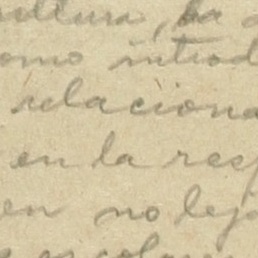 ultura, ha
omo introd
relaciona
en la res
en no lej
escolar